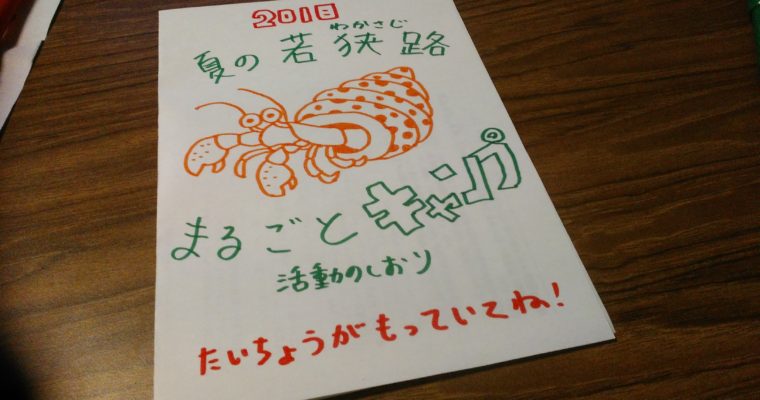 2018
わかさじ
夏の若狭路
まるごとキャンプ
活動のしおり
たいちょうがもっていてね!